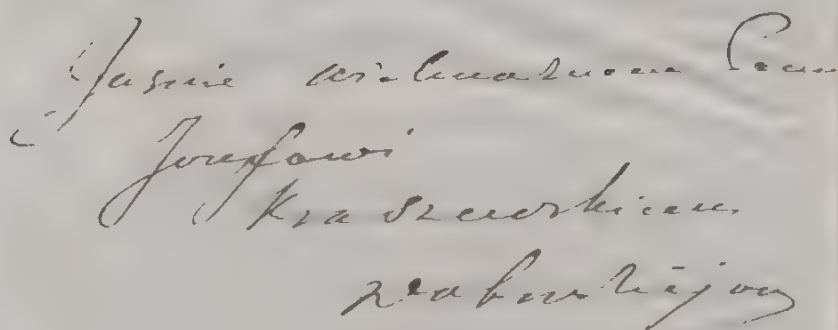 Jaśnie wielmożnemu Panu
Józefowi
Kraszewskiemu